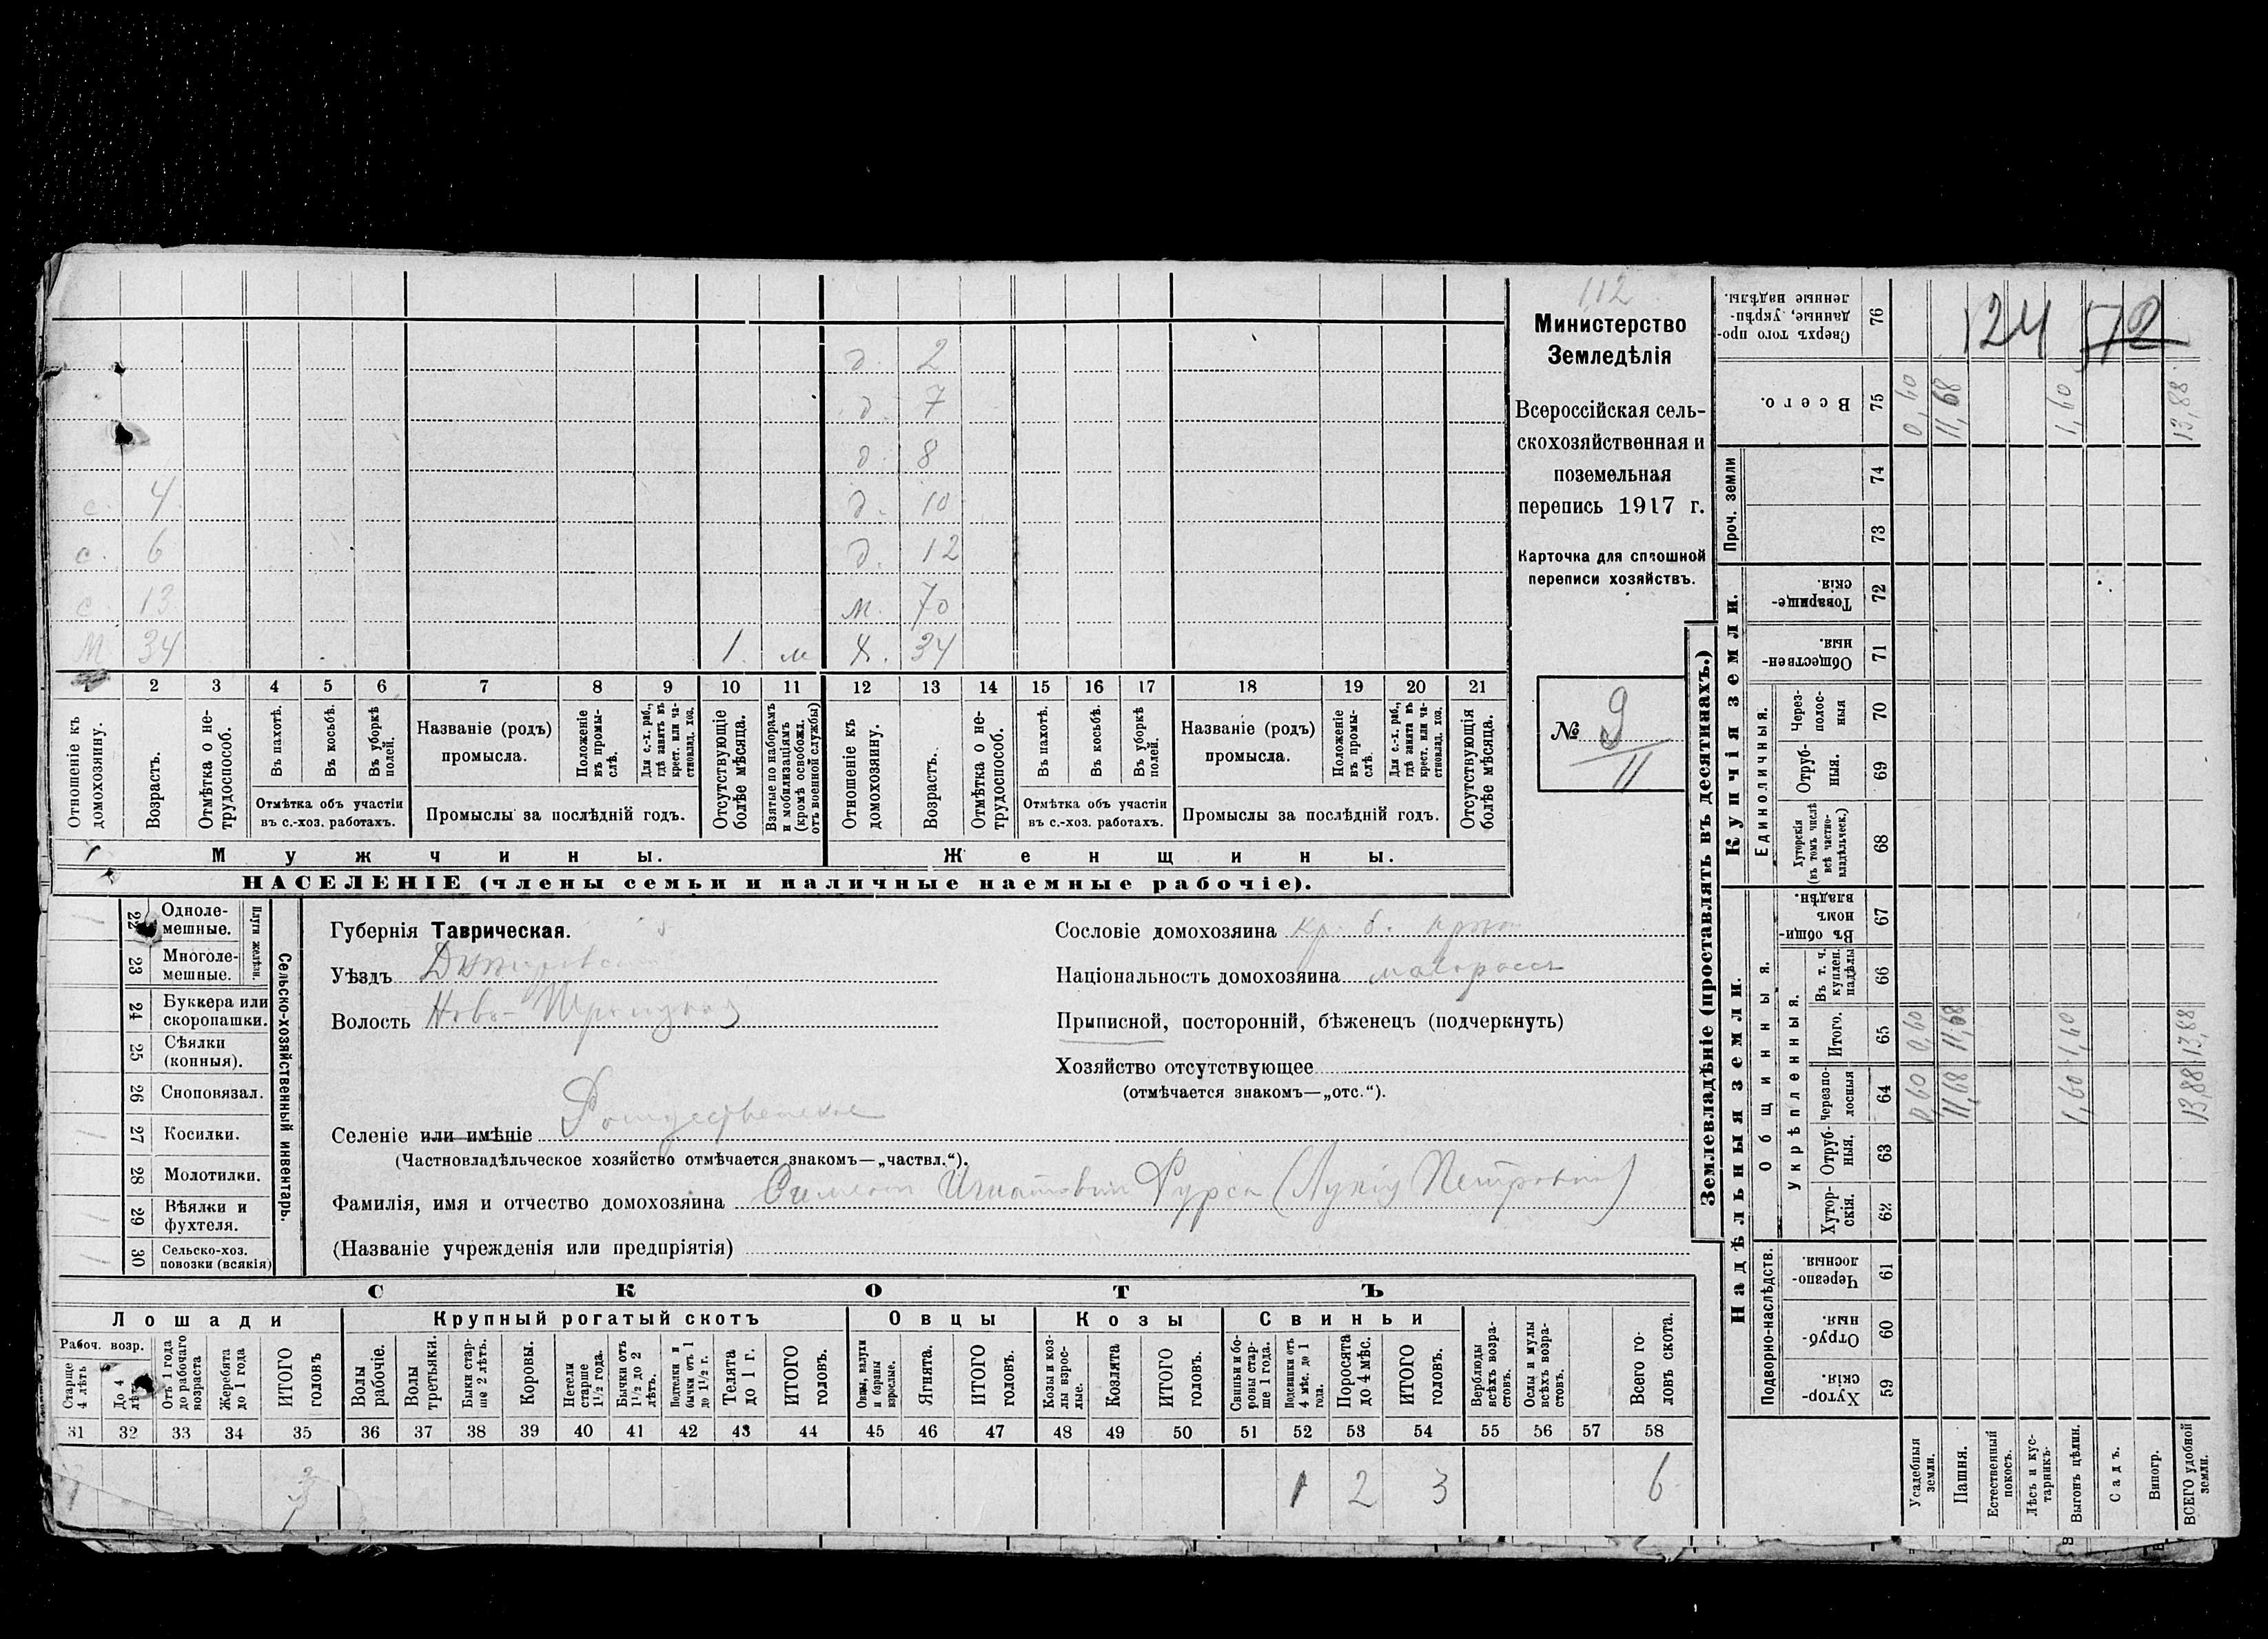 112
Министерство
Земледѣлія
Всероссійская сель-
скохозяйственная и
поземельная
перепись 1917 г.
Карточка для сплошной
переписи хозяйствъ.
№ 9
11
д. 2
д. 7
д. 8
с. 4 д. 10
с. 6 д. 12
с. 13 м. 70
М 34 1 м ж. 34
1 2 3 4 5 6 7 8 9 10 11 12 13 14 15 16 17 18 19 20 21
Отношеніе къ домохозяину.
Возрастъ.
Отмѣтка о не-трудоспособ.
Въ пахотѣ.
Въ косьбѣ.
Въ уборкѣ полей.
Отмѣтка объ участіи
въ с.-хоз. работахъ.
Названіе (родъ)
промысла.
Положеніе въ промы-слѣ.
Для с.-х. раб., гдѣ занятъ въ крест. или ча-стновлад. хоз.
Промыслы за послѣдній годъ.
Отсутствующіе болѣе мѣсяца.
Взятые по наборамъ и мобилизаціямъ (кромѣ освобожд. отъ военной службы)
Отношеніе къ домохозяину.
Возрастъ.
Отмѣтка о не-трудоспособ.
Въ пахотѣ.
Въ косьбѣ.
Въ уборкѣ полей.
Отмѣтка объ участіи
въ с.-хоз. работахъ.
Названіе (родъ)
промысла.
Положеніе въ промы-слѣ.
Для с.-х. раб., гдѣ занята въ крест. или ча-стновлад. хоз.
Промыслы за послѣдній годъ.
Отсутствующія болѣе мѣсяца.
Мужчины.
Женщины.
НАСЕЛЕНІЕ (члены семьи и наличные наемные рабочіе).
Сельско-хозяйственный инвентарь.
Плуги желѣзн.
1 22 Одноле-мешные.
23 Многоле-мешные.
24 Буккера или скоропашки.
25 Сѣялки (конныя).
26 Сноповязал.
1 27 Косилки.
28 Молотилки.
1 29 Вѣялки и фухтеля.
1 30 Сельско-хоз. повозки (всякія)
Губернія Таврическая.
Уѣздъ Днѣпровскій
Волость Ново-Троицкая
Селеніе или имѣніе Рождественское
(Частновладѣльческое хозяйство отмѣчается знакомъ—„частвл.“).
Фамилія, имя и отчество домохозяина Игнатовичъ Фурса (Лукія Петровна)
(Названіе учрежденія или предпріятія)
Сословіе домохозяина кр. б.
Національность домохозяина малороссъ
Приписной, посторонній, бѣженецъ (подчеркнуть)
Хозяйство отсутствующее
(отмѣчается знакомъ—„отс.“).
СКОТЪ
Лошади
Крупный рогатый скотъ
Овцы
Козы
Свиньи
Рабоч. возр.
Старше 4 лѣтъ
До 4 лѣтъ
Отъ 1 года до рабочаго возраста
Жеребята до 1 года
ИТОГО головъ
Волы рабочіе.
Волы третьяки.
Быки стар-ше 2 лѣтъ.
Коровы.
Нетели старше 1½ года.
Бычки отъ 1½ до 2 лѣтъ.
Подтелки и бычки отъ 1 до 1½ г.
Телята до 1 г.
ИТОГО головъ.
Овцы, валухи и бараны взрослые.
Ягнята.
ИТОГО головъ.
Козы и коз-лы взрос-лые.
Козлята
ИТОГО головъ.
Свиньи и бо-ровы стар-ше 1 года.
Подсвинки отъ 4 мѣс. до 1 года.
Поросята до 4 мѣс.
ИТОГО головъ.
Верблюды всѣхъ возра-стовъ.
Ослы и мулы всѣхъ возра-стовъ.
Всего го-ловъ скота.
31 32 33 34 35 36 37 38 39 40 41 42 43 44 45 46 47 48 49 50 51 52 53 54 55 56 57 58
3 1 2 3 6
Землевладѣніе (проставлять въ десятинахъ.)
Надѣльныя земли.
Купчія земли.
Проч. земли
Подворно-наслѣдств.
Общинныя.
Укрѣпленныя.
Единоличныя.
Сверхъ того про-данные, укрѣп-ленные надѣлы. 76
124 572
Всего. 75 0,60 11,68 1,60 13,88
74
73
Товарище-скія. 72
Обществен-ныя. 71
Через-полос-ныя 70
Отруб-ныя. 69
Хуторскія (въ томъ числѣ всѣ частно-владѣльческ.) 68
Въ общин-номъ владѣн. 67
Въ т. ч. куплен. надѣлы 66
Итого. 65 0,60 11,68 1,60 13,88
Черезпо-лосныя 64 0,60 11,68 1,60 13,88
Отруб-ныя. 63
Хутор-скія. 62
Черезпо-лосныя. 61
Отруб-ныя. 60
Хутор-скія. 59
Усадебныя земли.
Пашня.
Естественный покосъ.
Лѣсъ и кус-тарникъ.
Выгонъ цѣлин.
Садъ.
Виногр.
ВСЕГО удобной земли.